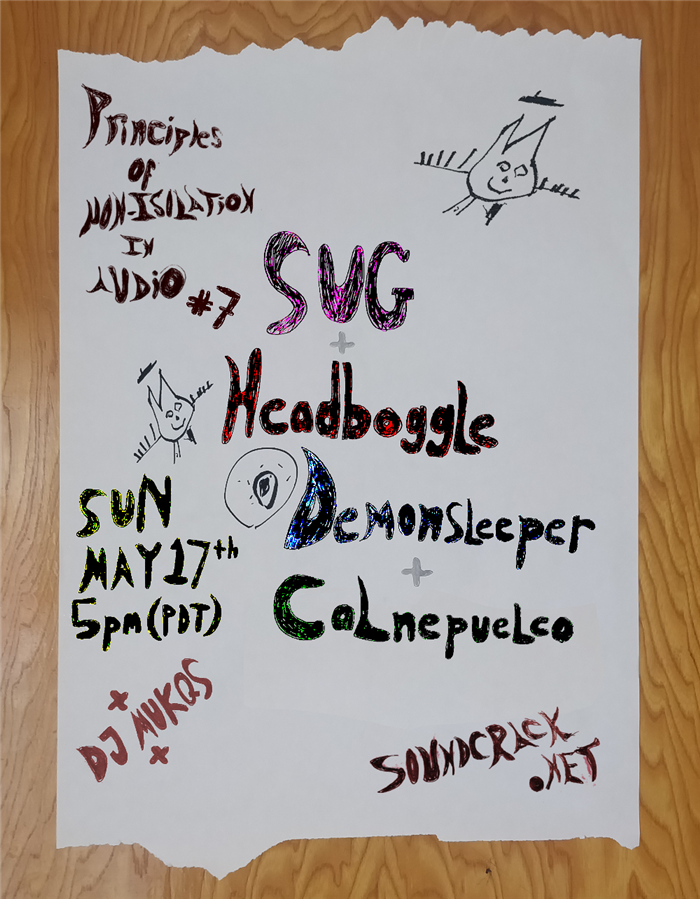 Principles
OF
NON-ISOLATION
IN
AUDIO #7
SUG
+
Headboggle
Demonsleeper
+
CaLnepueLco
SUN
MAY 17th
5pm (PDT)
DJ MUKQS
SOUNDCRACK
.NET